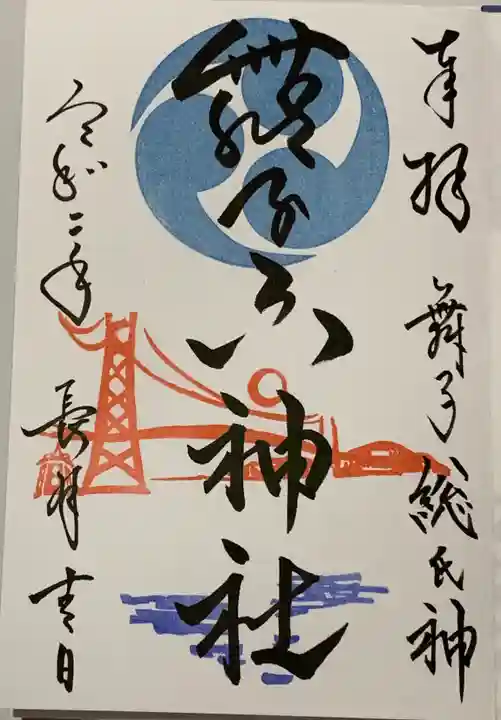 奉拝 舞子 総氏神
舞子六神社
令和二年 長月 吉日